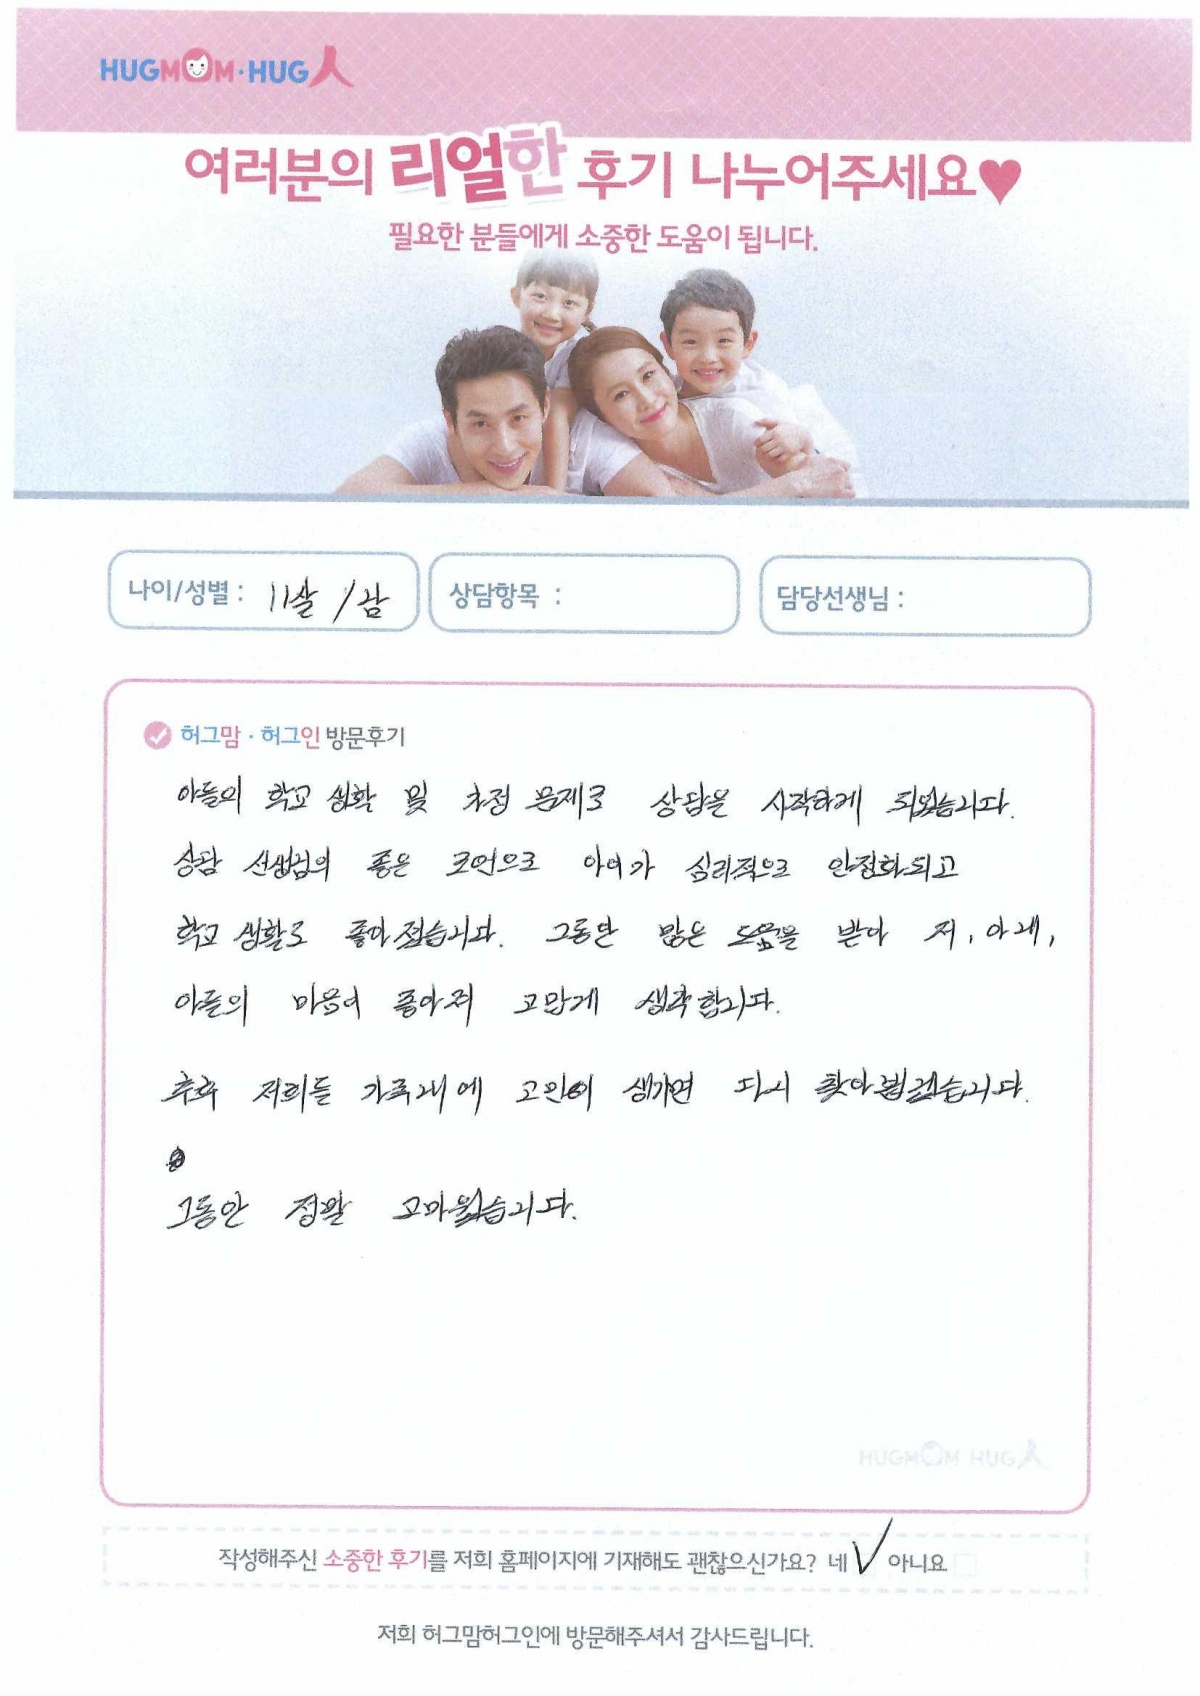 HUGMOM·HUG人
여러분의 리얼한 후기 나누어주세요♥
필요한 분들에게 소중한 도움이 됩니다.
나이/성별 : 11살 / 남
상담항목 :
담당선생님 :
허그맘·허그인 방문후기
아들의 학교 생활 및 초점 문제로 상담을 시작하게 되었습니다.
상담 선생님의 좋은 조언으로 아이가 심리적으로 안정화되고
학교 생활도 좋아졌습니다. 그동안 많은 도움을 받아 저, 아내,
아들의 마음이 좋아져 고맙게 생각합니다.
추후 저희들 가족내에 고민이 생기면 다시 찾아뵙겠습니다.
그동안 정말 고마웠습니다.
HUGMOM HUG人
작성해주신 소중한 후기를 저희 홈페이지에 기재해도 괜찮으신가요? 네 ✓ 아니요
저희 허그맘허그인에 방문해주셔서 감사드립니다.